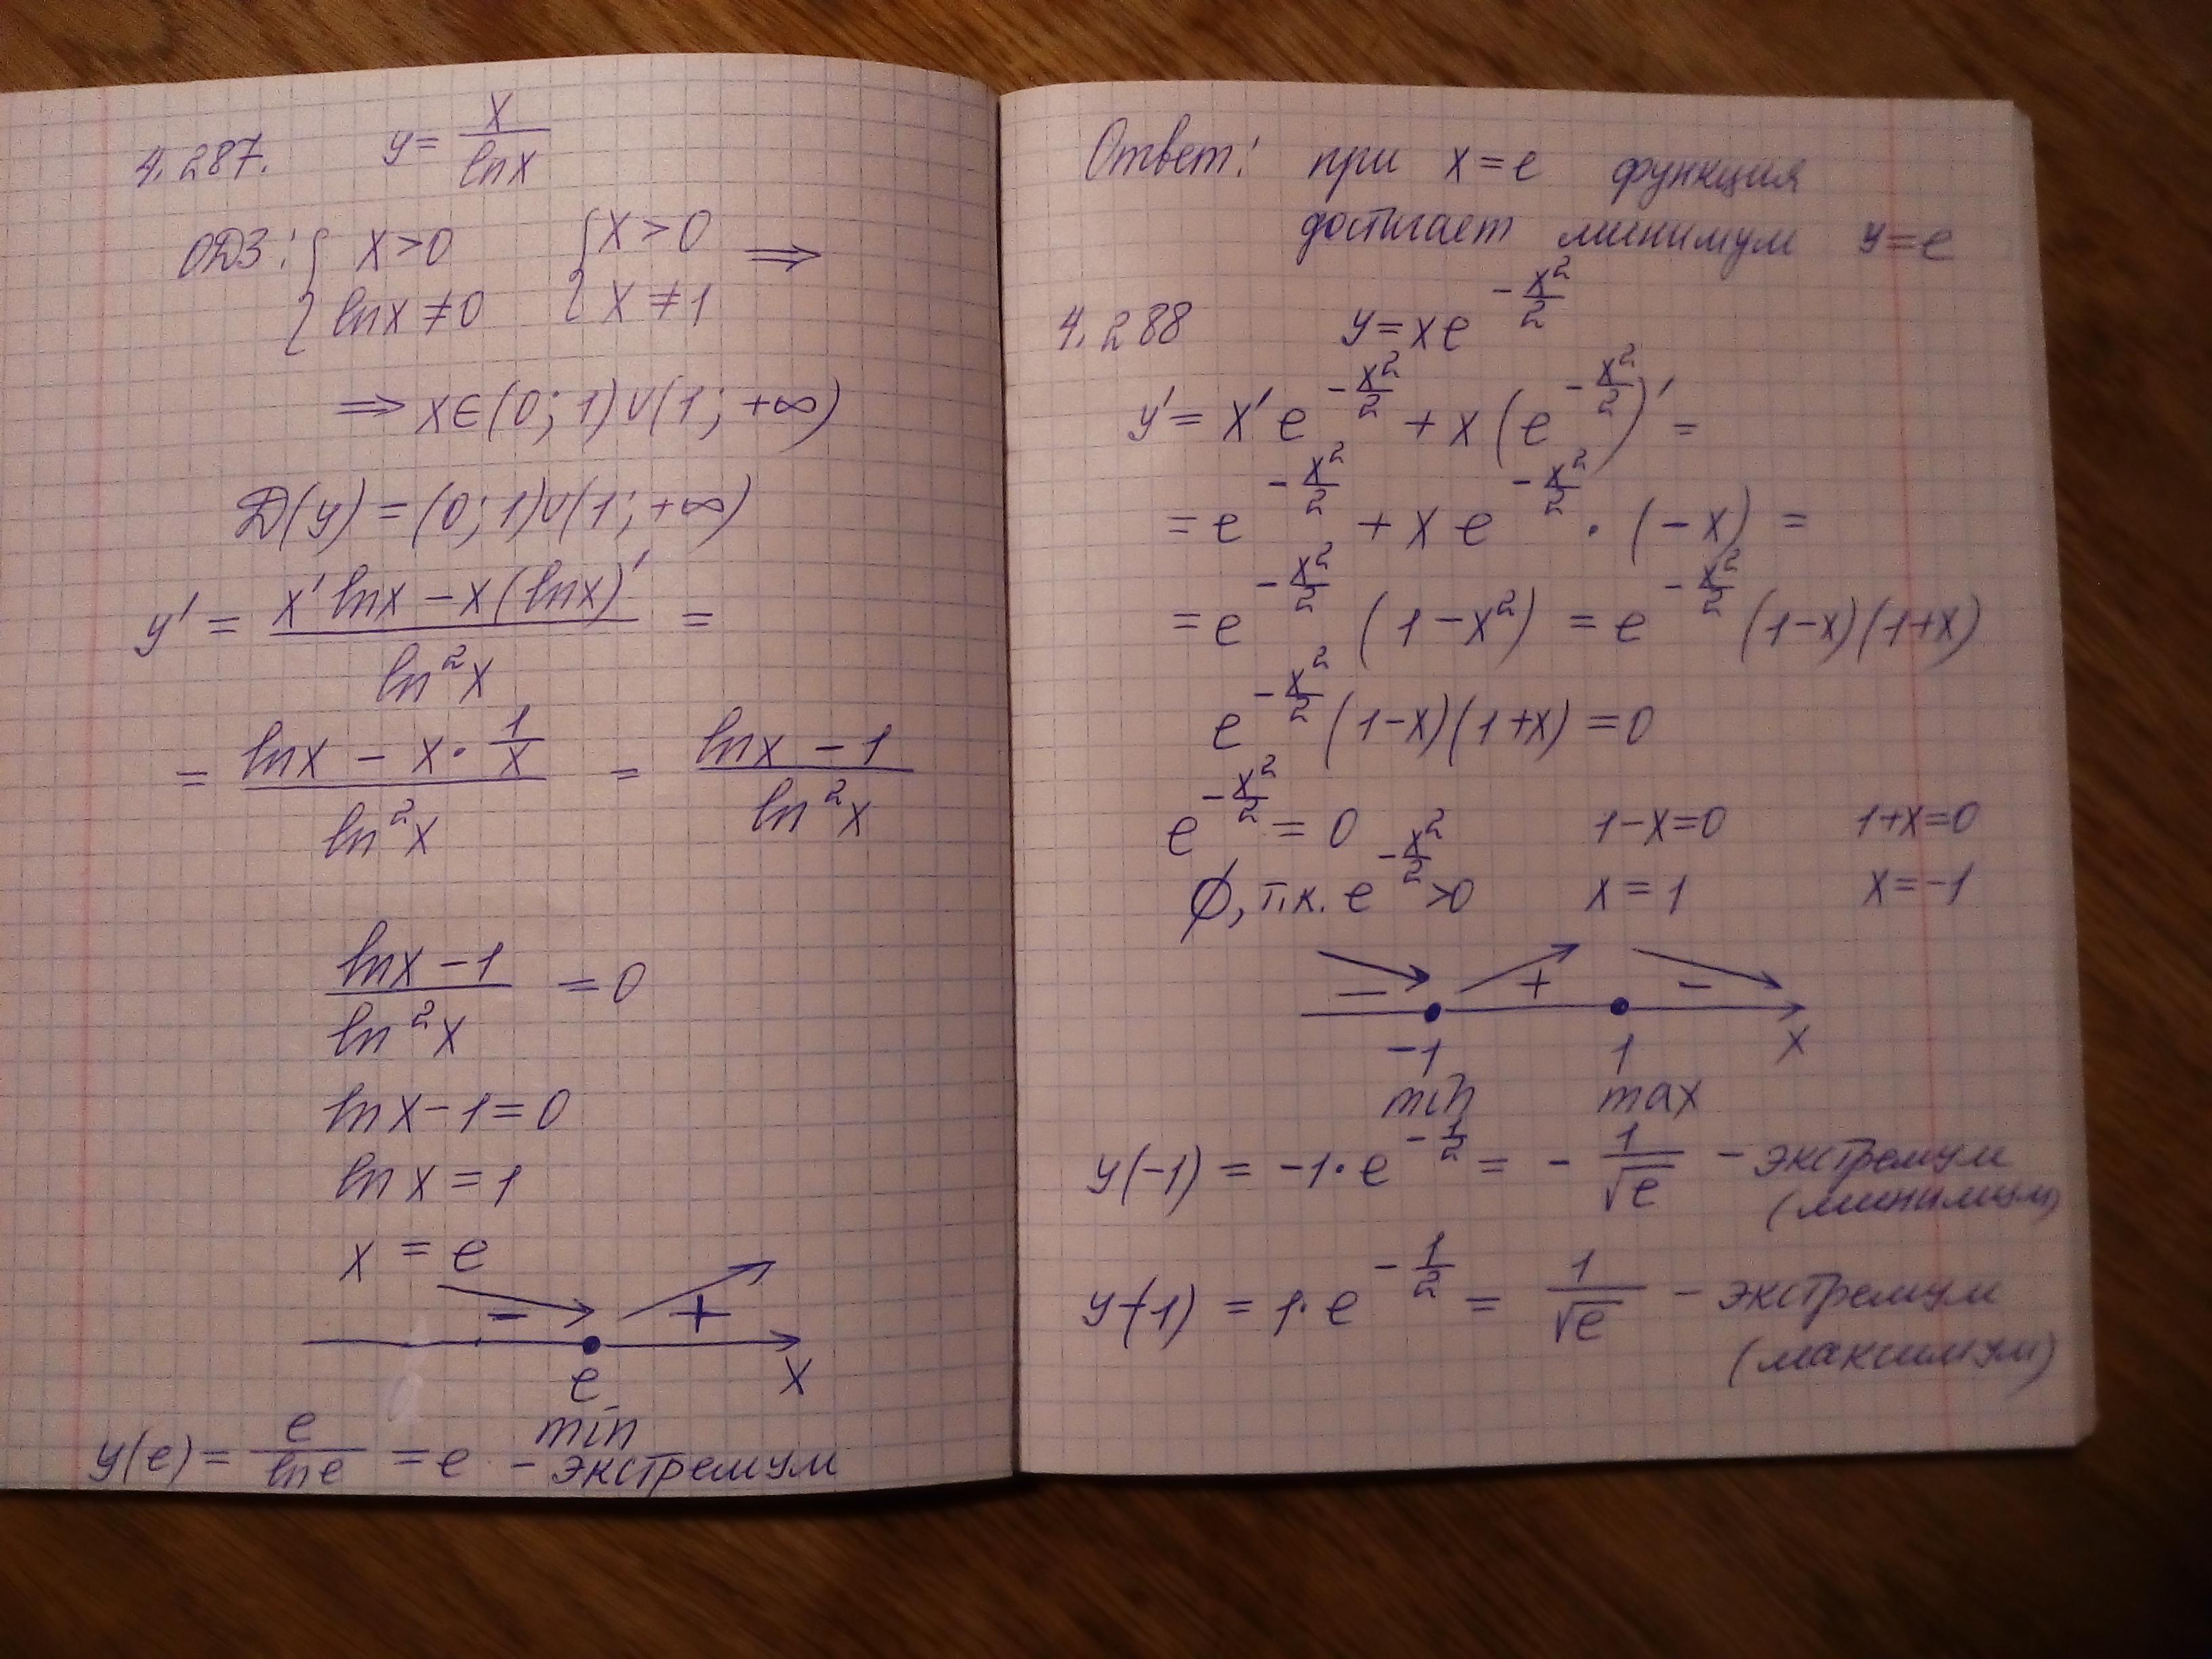 4.287. y = x/lnx
ОДЗ: { x>0 { x>0 ⇒
lnx ≠ 0 x ≠ 1
⇒ x∈(0; 1)∪(1; +∞)
D(y) = (0; 1)∪(1; +∞)
y' = (x' lnx − x(lnx)')/ln²x =
= (lnx − x · 1/x)/ln²x = (lnx − 1)/ln²x
(lnx − 1)/ln²x = 0
lnx − 1 = 0
lnx = 1
x = e
− +
e x
min
y(e) = e/lne = e − экстремум
Ответ: при x = e функция
достигает минимум y = e
4.288 y = xe^(−x²/2)
y' = x' e^(−x²/2) + x(e^(−x²/2))' =
= e^(−x²/2) + x e^(−x²/2) · (−x) =
= e^(−x²/2) (1 − x²) = e^(−x²/2) (1−x)(1+x)
e^(−x²/2) (1−x)(1+x) = 0
e^(−x²/2) = 0 1−x=0 1+x=0
∅, т.к. e^(−x²/2) >0 x = 1 x = −1
− + −
−1 1 x
min max
y(−1) = −1 · e^(−1/2) = − 1/√e − экстремум
(минимум)
y(1) = 1 · e^(−1/2) = 1/√e − экстремум
(максимум)